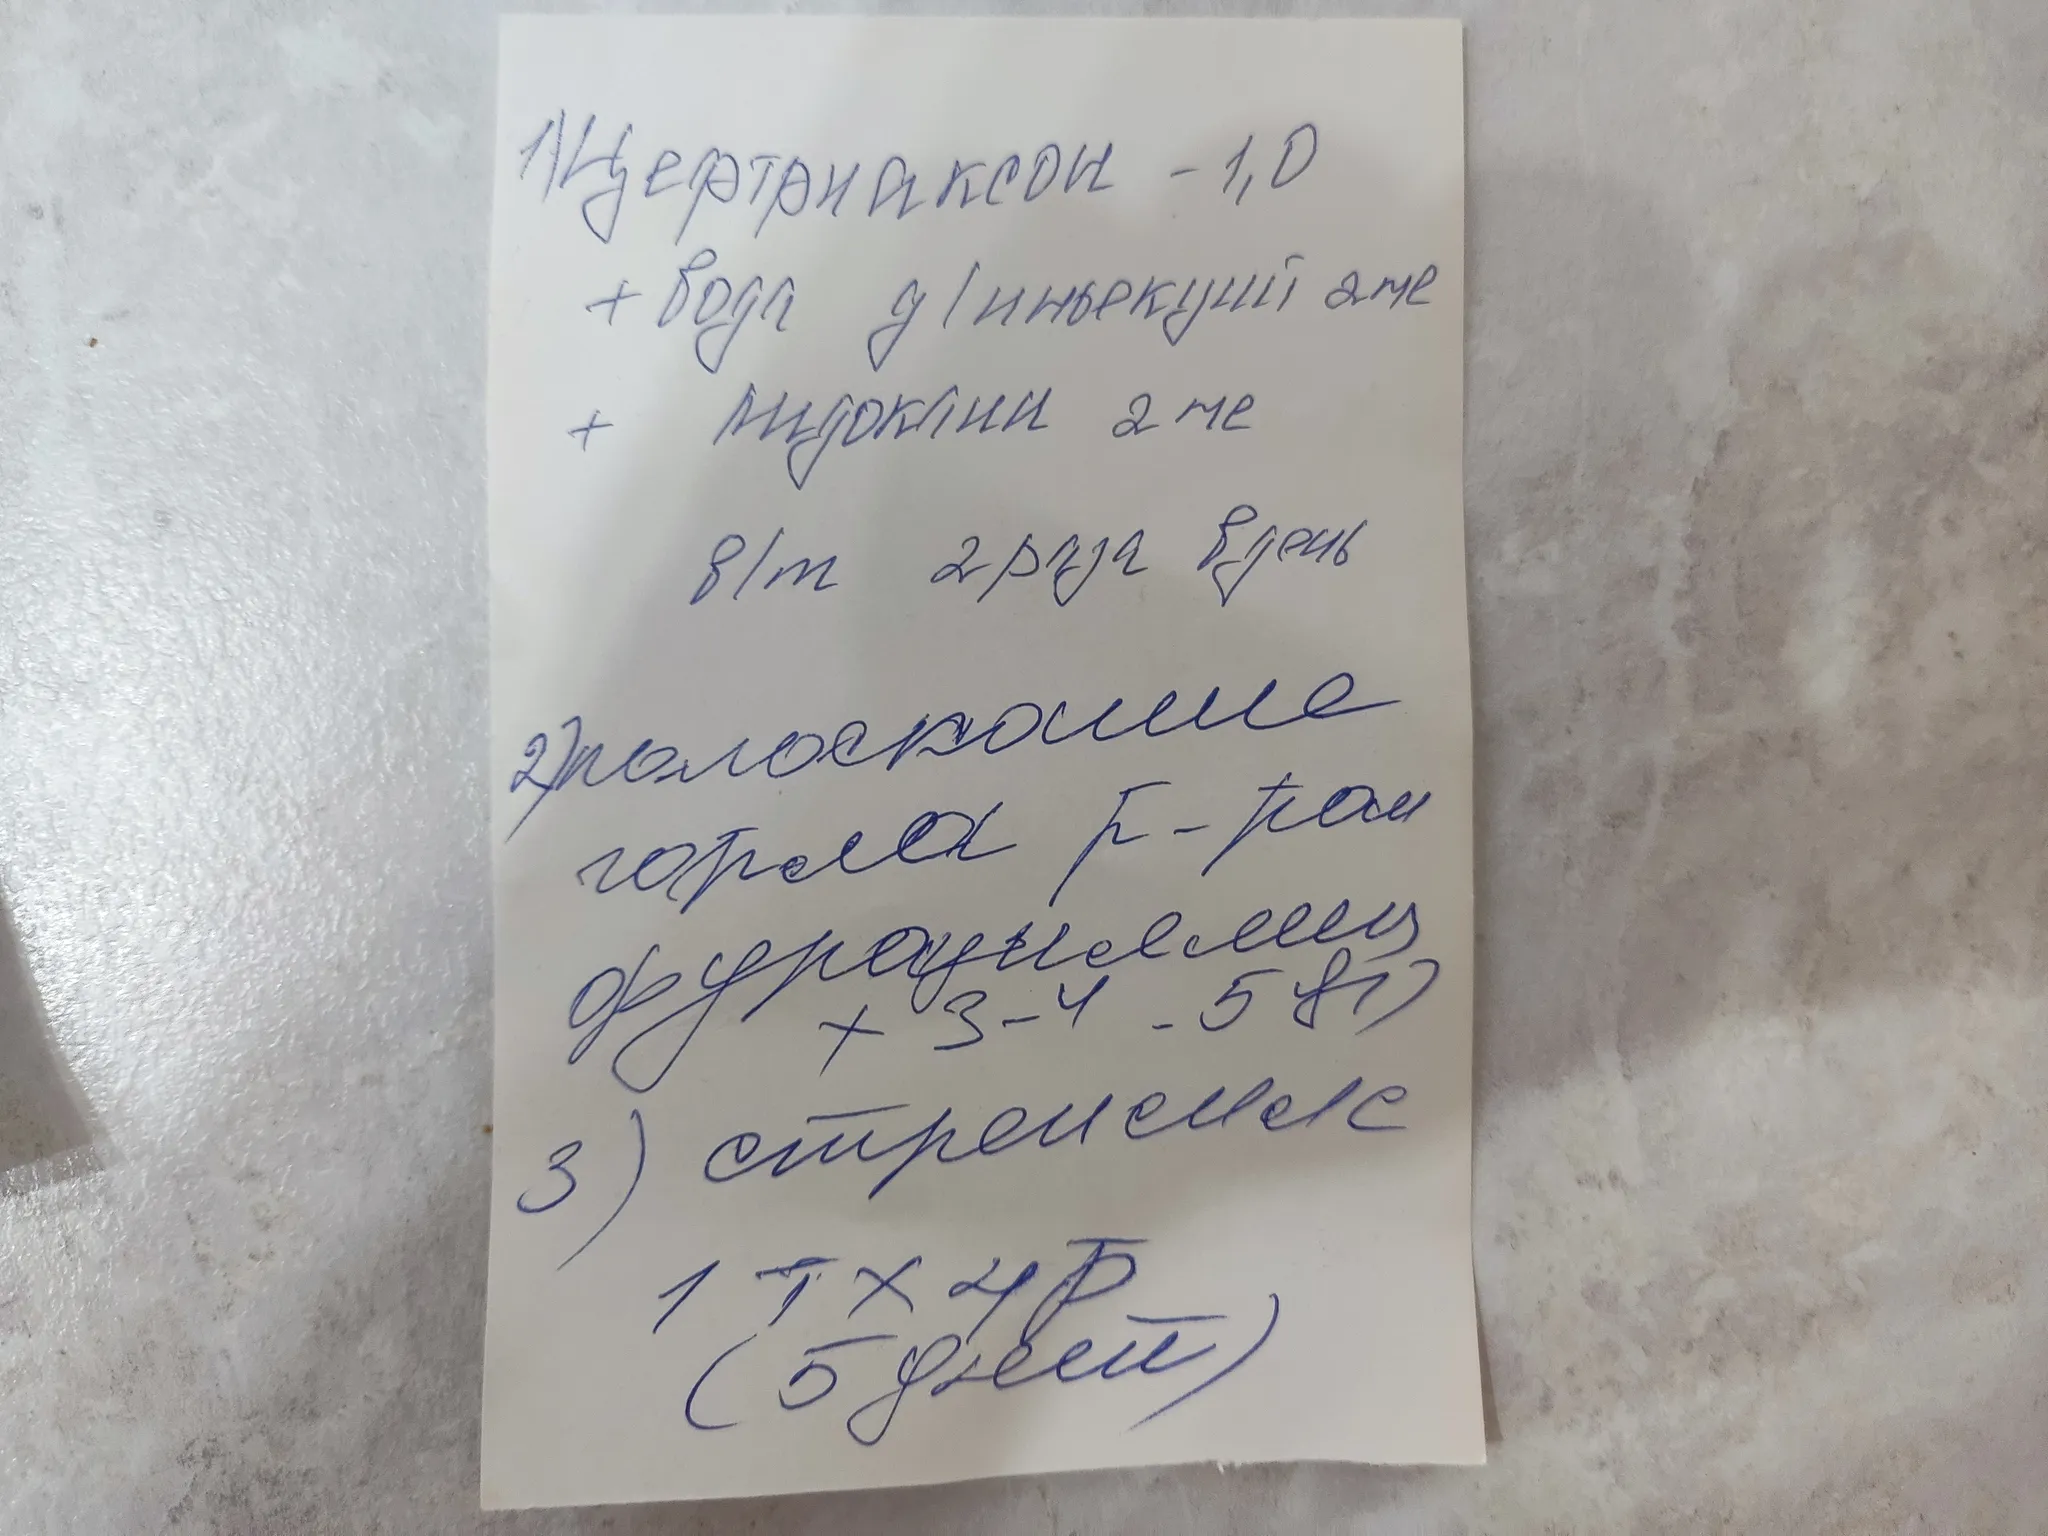 1) Цефтриаксон - 1,0
+ вода д/инъекций 2 мл
+ лидокаин 2 мл
в/м 2 раза в день
2) полоскание
горла р-ром
фурацилин
х 3-4 - 5
3) стрепсилс
1 т х 4 р
(5 дней)